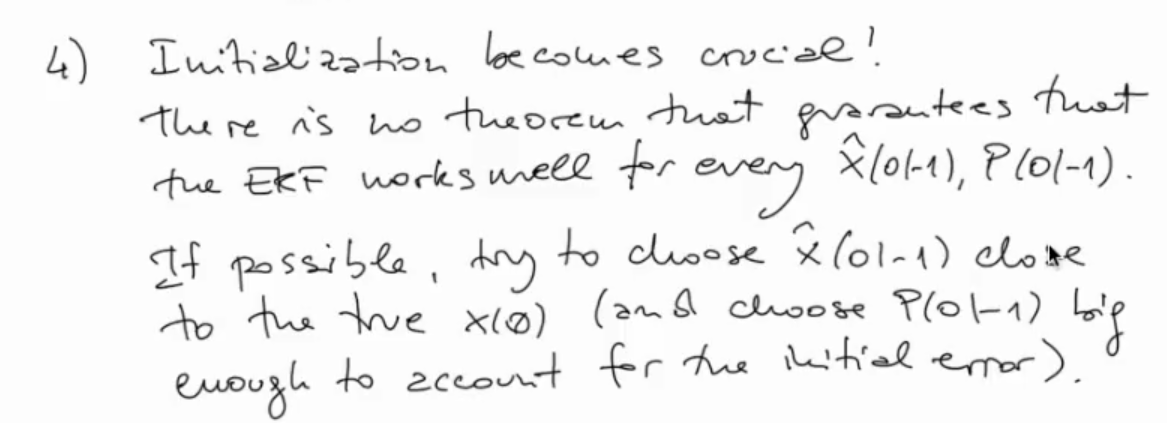 4) Initialization becomes crucial!
there is no theorem that guarantees that
the EKF works well for every x̂(0|-1), P(0|-1).
If possible, try to choose x̂(0|-1) close
to the true x(0) (and choose P(0|-1) big
enough to account for the initial error).